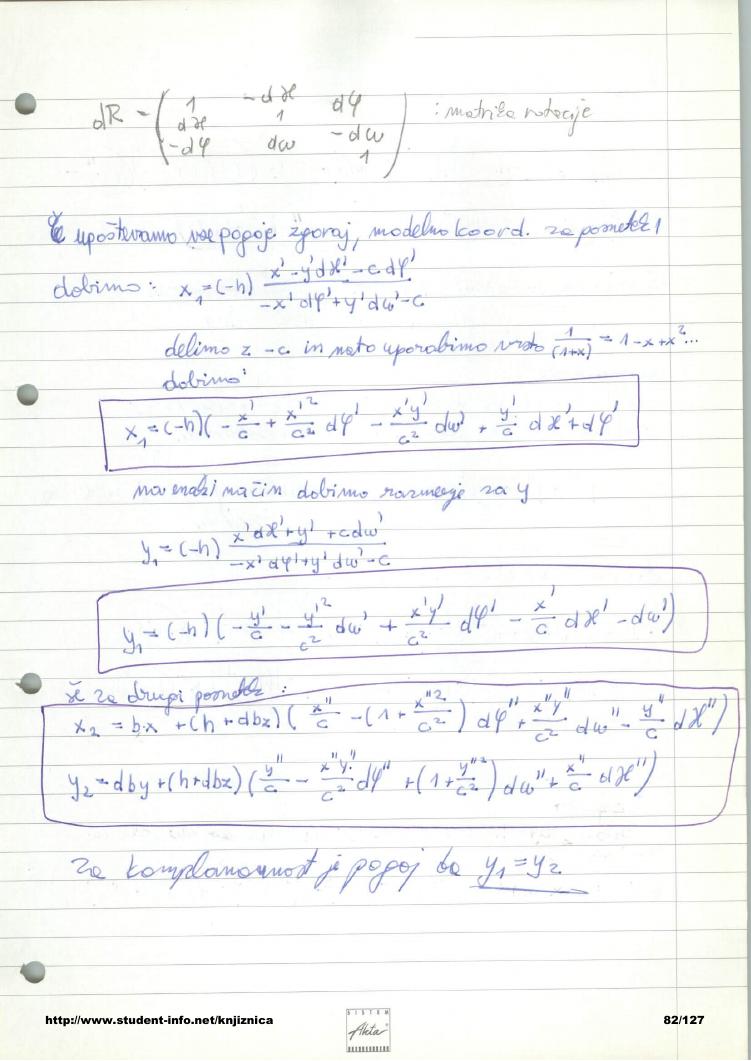 dR = ( 1 -dϰ dφ : matrika rotacije
dϰ 1 -dω
-dφ dω 1 )
Če upoštevamo vse pogoje zgoraj, modelno koord. za posnetek 1
dobimo: x₁ = (-h) (x' - y'dϰ' - c dφ') / (-x'dφ' + y'dω' - c)
delimo z -c in nato uporabimo vrsto 1/(1+x) = 1 - x + x² ...
dobimo:
x₁ = (-h)( - x'/c + x'²/c² dφ' - x'y'/c² dω' + y'/c dϰ' + dφ'
na enaki način dobimo razmerje za y
y₁ = (-h) (x'dϰ' + y' + c dω') / (-x'dφ' + y'dω' - c)
y₁ = (-h) ( - y'/c - y'²/c² dω' + x'y'/c² dφ' - x'/c dϰ' - dω')
še za drugi posnetek :
x₂ = b·x + (h + dbz) ( x''/c - (1 + x''²/c²) dφ'' + x''y''/c² dω'' - y''/c dϰ'')
y₂ = dby + (h + dbz) ( y''/c - x''y''/c² dφ'' + (1 + y''²/c²) dω'' + x''/c dϰ'')
Za komplanarnost je pogoj da y₁ = y₂
http://www.student-info.net/knjiznica
SISTEM
Akta
82/127